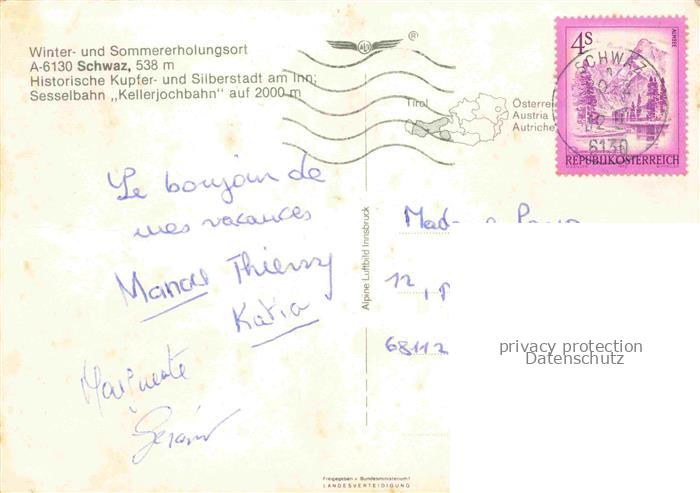 Winter- und Sommererholungsort
A-6130 Schwaz, 538 m
Historische Kupfer- und Silberstadt am Inn;
Sesselbahn „Kellerjochbahn" auf 2000 m
®
Tirol
Österre
Austria
Autriche
SCHWAZ
6130
4S
ALMSEE
REPUBLIK ÖSTERREICH
Le bonjour de
mes vacances
Thierry
Katia
Marguerite
Gérard
Alpine Luftbild Innsbruck
12,
68112
privacy protection
Datenschutz
Freigegeben v. Bundesministerium f.
LANDESVERTEIDIGUNG